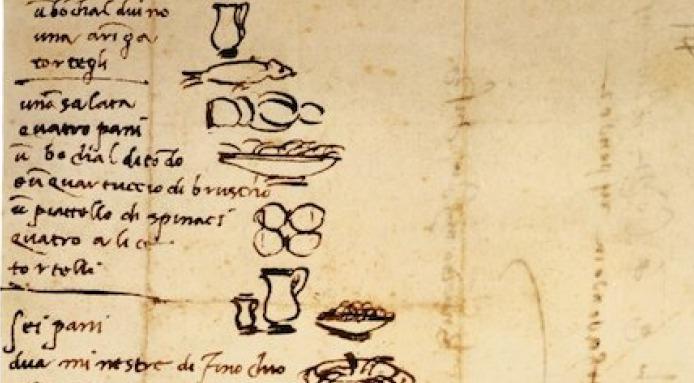 ū bochal duino
una aringa
tortegli
una salata
quatro pani
ū bochal di tōdo
e ū quartuccio di bruscho
ū piattello di spinaci
quatro alice
tortelli
sei pani
dua minestre di finochio